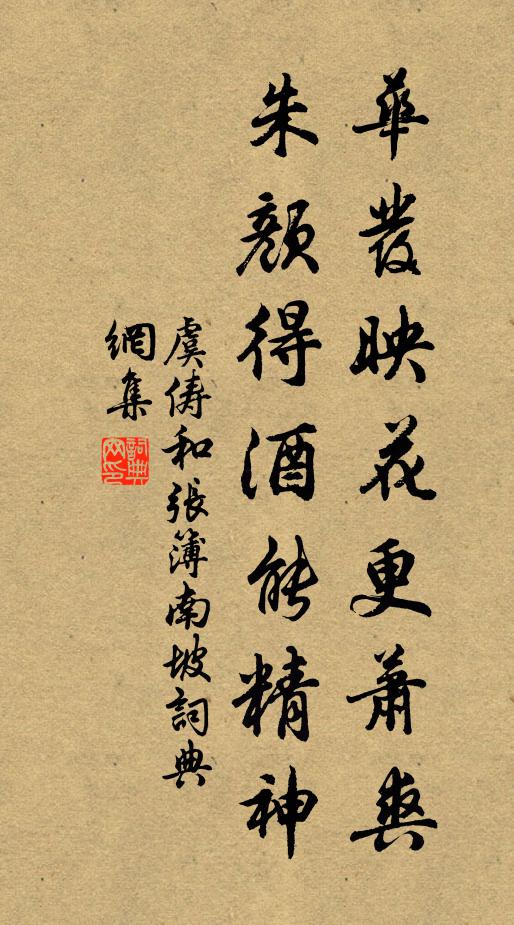 華發映花更蕭爽
朱顏得酒能精神
虞儔和張簿南坡詞典
網集
詞典網印